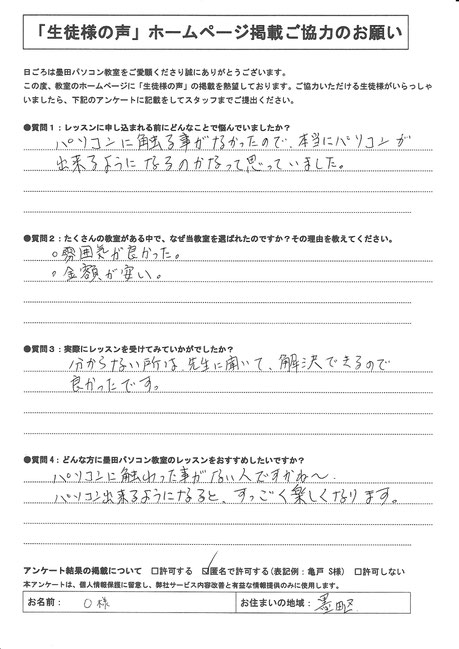 「生徒様の声」ホームページ掲載ご協力のお願い
日ごろは墨田パソコン教室をご愛顧くださり誠にありがとうございます。
この度、教室のホームページに「生徒様の声」の掲載を熱望しております。ご協力いただける生徒様がいらっしゃ
いましたら、下記のアンケートに記載をしてスタッフまでご提出ください。
●質問1：レッスンに申し込まれる前にどんなことで悩んでいましたか？
パソコンに触る事がなかったので、本当にパソコンが
出来るようになるのかなって思っていました。
●質問2：たくさんの教室がある中で、なぜ当教室を選ばれたのですか？その理由を教えてください。
○雰囲気が良かった。
○金額が安い。
●質問3：実際にレッスンを受けてみていかがでしたか？
分からない所は、先生に聞いて、解決できるので
良かったです。
●質問4：どんな方に墨田パソコン教室のレッスンをおすすめしたいですか？
パソコンに触わった事がない人ですかね〜
パソコン出来るようになると、すっごく楽しくなります。
アンケート結果の掲載について　□許可する　☑匿名で許可する(表記例：亀戸 S様)　□許可しない
本アンケートは、個人情報保護に留意し、弊社サービス内容改善と有益な情報提供のみに使用します。
お名前：　O様　お住まいの地域：墨田区